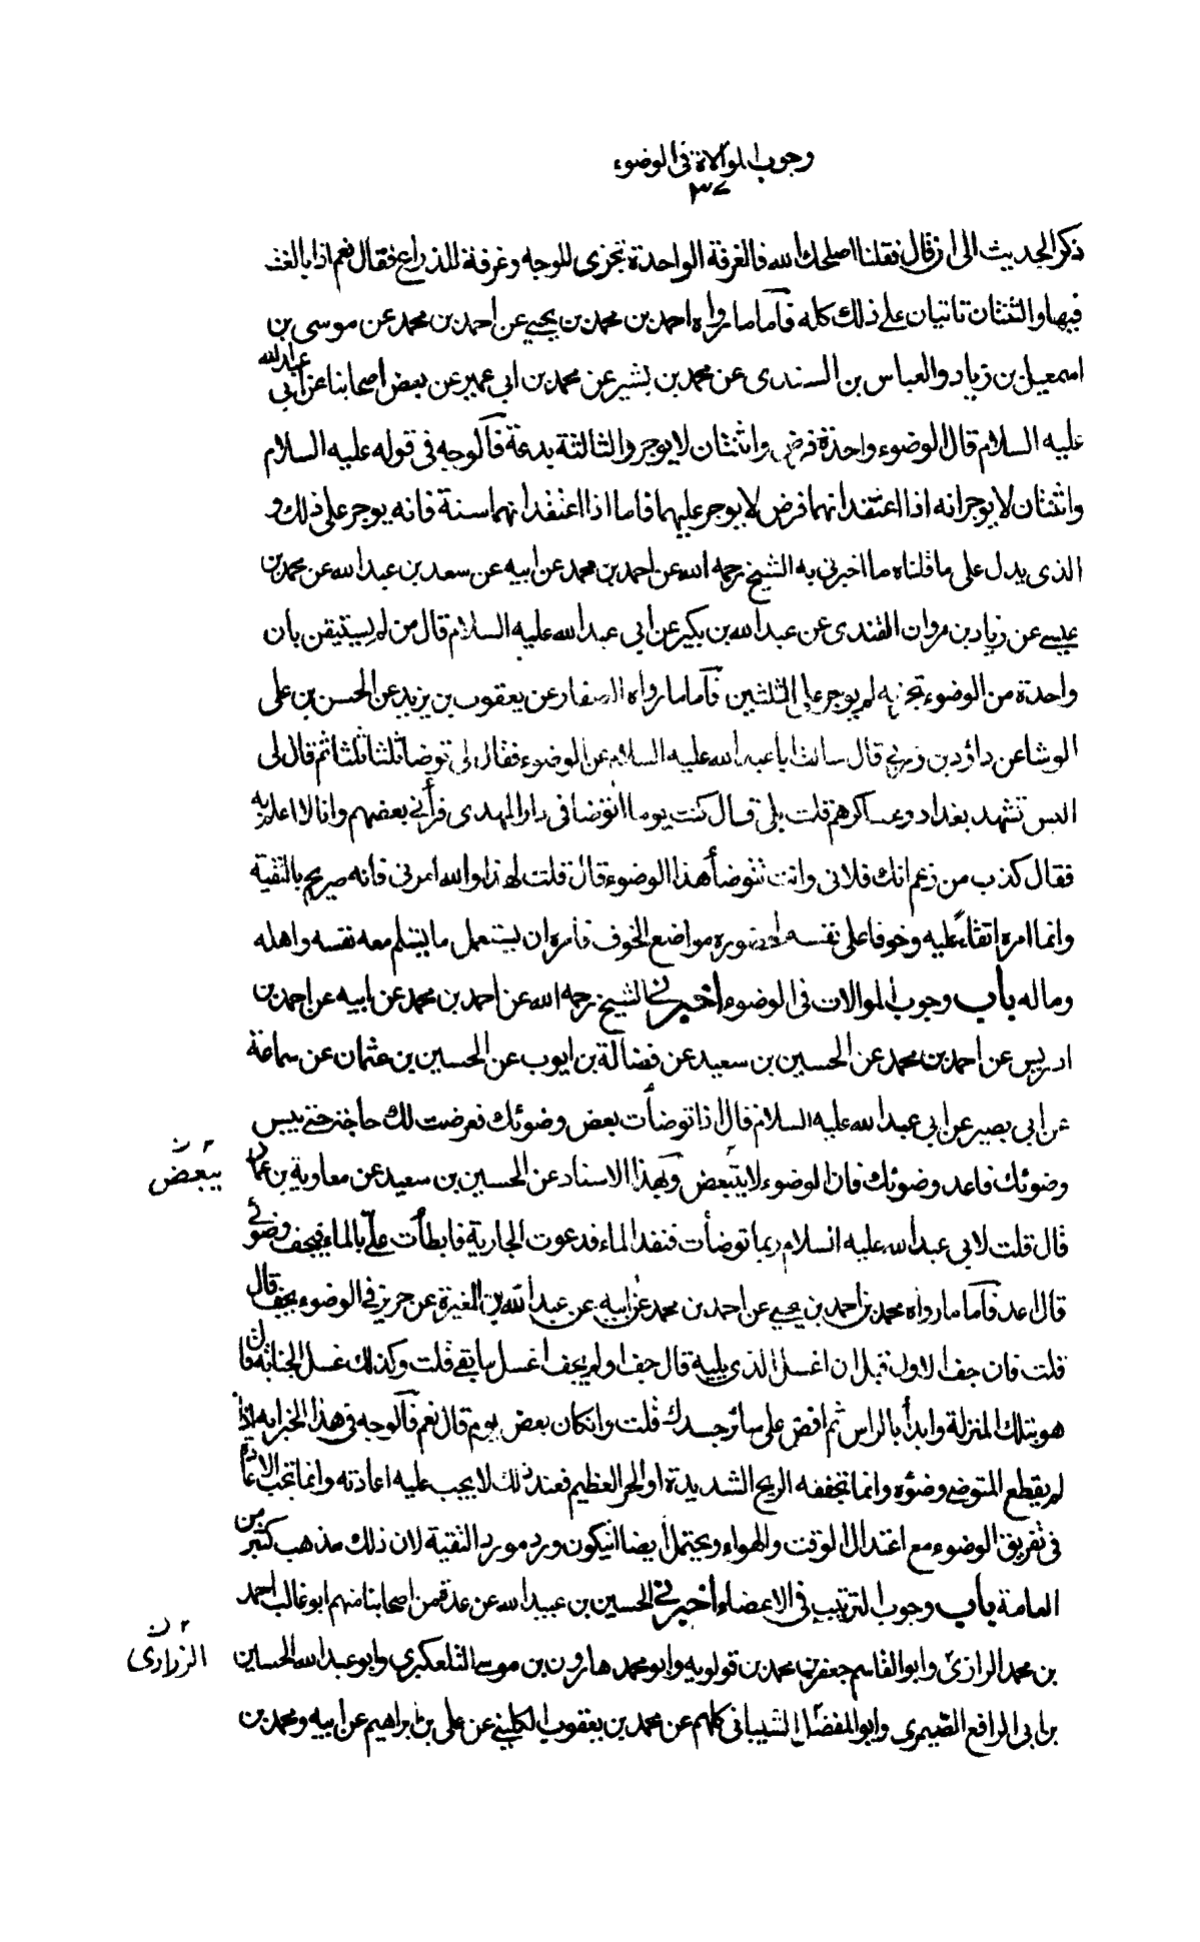 وجوب الموالاة فى الوضوء
٣٧
ذكر الحديث الى ان قال فقلنا اصلحك الله فالغرفة الواحدة تجزى للوجه وغرفة للذراع فقال نعم اذا بالغت
فيها والثنتان تاتيان على ذلك كله فآما ما رواه احمد بن محمد بن يحيى عن احمد بن محمد عن موسى بن
اسمعيل بن زياد والعباس بن السندى عن محمد بن بشير عن محمد بن ابى عمير عن بعض اصحابنا عن ابى عبد الله
عليه السلام قال الوضوء واحدة فرض واثنتان لا يوجر والثالثة بدعة فآلوجه فى قوله عليه السلام
واثنتان لا يوجر انه اذا اعتقد انهما فرض لا يوجر عليهما فاما اذا اعتقد انهما سنة فانه يوجر على ذلك و
الذى يدل على ما قلناه ما اخبرنى به الشيخ رحمه الله عن احمد بن محمد عن ابيه عن سعد بن عبد الله عن محمد بن
عيسى عن زياد بن مروان القندى عن عبد الله بن بكير عن ابى عبد الله عليه السلام قال من لم يستيقن بان
واحدة من الوضوء تجزيه لم يوجر على الثنتين فآما ما رواه الصفار عن يعقوب بن يزيد عن الحسن بن على
الوشا عن داؤد بن زربى قال سالت ابا عبد الله عليه السلام عن الوضوء فقال لى توضا ثلثا ثلثا ثم قال لى
اليس تشهد بغداد وعساكرهم قلت بلى قال كنت يوما اتوضا فى دار المهدى فرأنى بعضهم وانا لا اعلم به
فقال كذب من زعم انك فلانى وانت تتوضأ هذا الوضوء قال فقلت لهذا والله امرنى فانه صريح بالتقية
وانما امره اتقاء عليه وخوفا على نفسه لحضوره مواضع الخوف فامره ان يستعمل ما يسلم معه نفسه واهله
وماله باب وجوب الموالات فى الوضوء اخبرنى الشيخ رحمه الله عن احمد بن محمد عن ابيه عن احمد بن
ادريس عن احمد بن محمد عن الحسين بن سعيد عن فضالة بن ايوب عن الحسين بن عثمان عن سماعة
عن ابى بصير عن ابى عبد الله عليه السلام قال اذا توضأت بعض وضوئك فعرضت لك حاجة حتى يبس
وضوئك فاعد وضوئك فان الوضوء لا يتبعض وبهذا الاسناد عن الحسين بن سعيد عن معاوية بن عمار
يبعض
قال قلت لابى عبد الله عليه السلام ربما توضأت فنفد الماء فدعوت الجارية فابطأت على بالماء فيجف وضوئى
قال اعد فآما ما رواه محمد بن احمد بن يحيى عن احمد بن محمد عن ابيه عن عبد الله بن المغيرة عن حريز فى الوضوء يجف قال
قلت فان جف الاول قبل ان اغسل الذى يليه قال جف او لم يجف اغسل ما بقى قلت وكذلك غسل الجنابة قال
هو بتلك المنزلة وابدأ بالراس ثم افض على سائر جسدك قلت وان كان بعض يوم قال نعم فآلوجه فى هذا الخبر انه اذا
لم يقطع المتوضى وضؤه وانما تجففه الريح الشديدة او الحر العظيم فعند ذلك لا يجب عليه اعادته وانما تجب الاعادة
فى تفريق الوضوء مع اعتدال الوقت والهواء ويحتمل ايضا ان يكون ورد مورد التقية لان ذلك مذهب كثير من
العامة باب وجوب الترتيب فى الاعضاء اخبرنى الحسين بن عبيد الله عن عدة من اصحابنا منهم ابو غالب احمد
بن محمد الرازى وابو القاسم جعفر بن محمد بن قولويه وابو محمد هارون بن موسى التلعكبرى وابو عبد الله الحسين
الزرارى
بن ابى الرافع الصيمرى وابو المفضل الشيبانى كلهم عن محمد بن يعقوب الكلينى عن على بن ابراهيم عن ابيه ومحمد بن